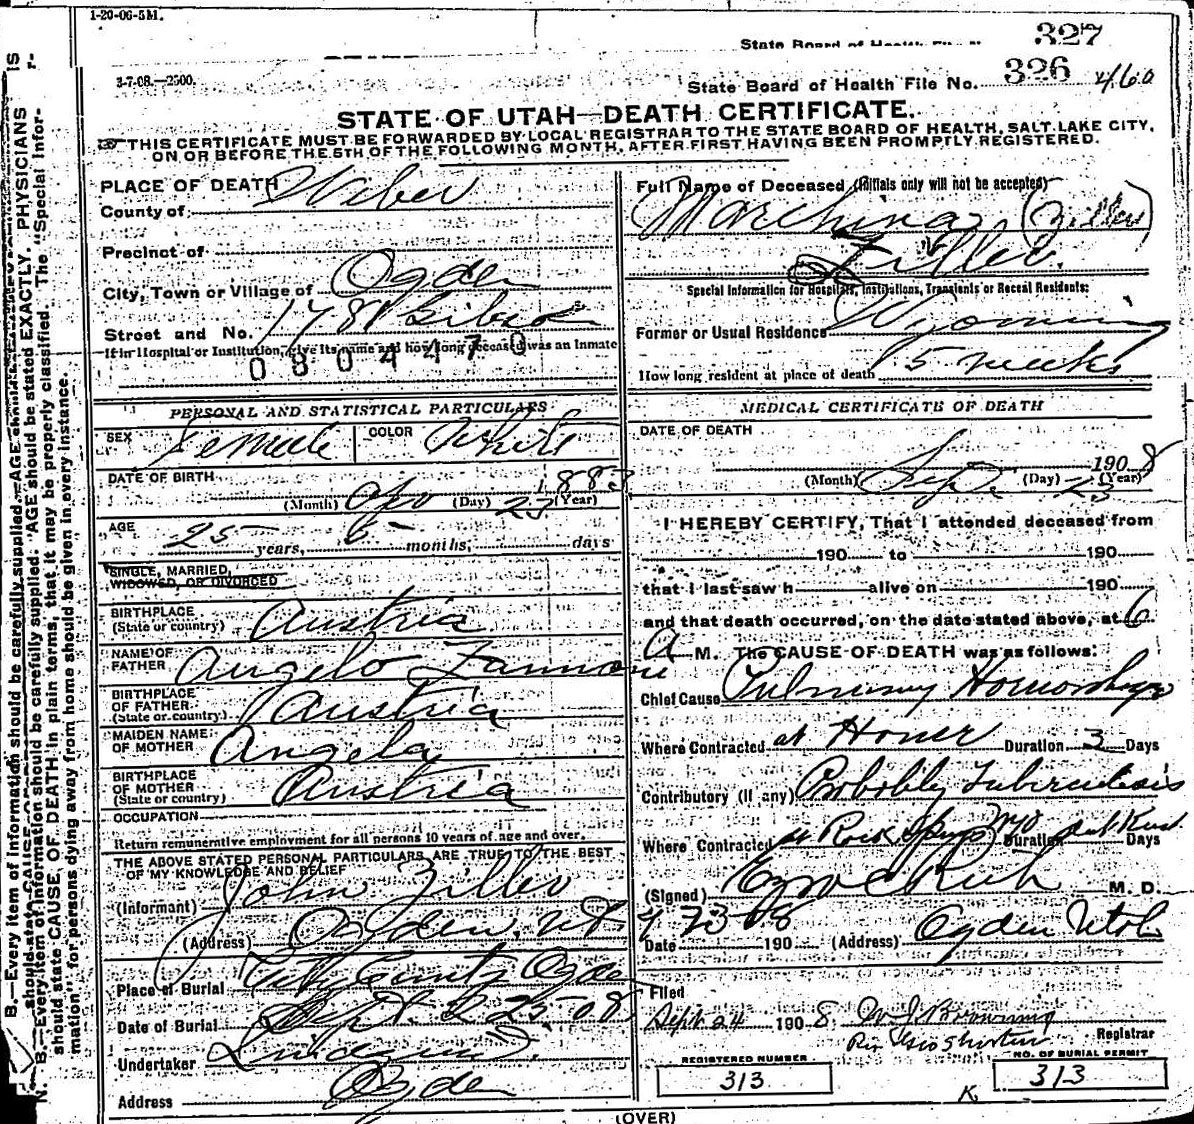 1-20-06-5M.
327
State Board of Health File N
3-7-08.—2500.
State Board of Health File No. 326 460
STATE OF UTAH—DEATH CERTIFICATE.
THIS CERTIFICATE MUST BE FORWARDED BY LOCAL REGISTRAR TO THE STATE BOARD OF HEALTH, SALT LAKE CITY,
ON OR BEFORE THE 5TH OF THE FOLLOWING MONTH, AFTER FIRST HAVING BEEN PROMPTLY REGISTERED.
PLACE OF DEATH
County of Weber
Precinct of
City, Town or Village of Ogden
Street and No. 1781 Gibson
If in Hospital or Institution, give its name and how long deceased was an Inmate
0804470
PERSONAL AND STATISTICAL PARTICULARS
SEX Female COLOR White
DATE OF BIRTH
(Month) Apr (Day) 23 1883 (Year)
AGE 25 years, 6 months, days
SINGLE, MARRIED,
WIDOWED, OR DIVORCED
BIRTHPLACE
(State or country) Austria
NAME OF
FATHER Angelo
BIRTHPLACE
OF FATHER
(State or country) Austria
MAIDEN NAME
OF MOTHER Angela
BIRTHPLACE
OF MOTHER
(State or country) Austria
OCCUPATION
Return remunerative employment for all persons 10 years of age and over.
THE ABOVE STATED PERSONAL PARTICULARS ARE TRUE TO THE BEST
OF MY KNOWLEDGE AND BELIEF
(Informant) John Ziller
(Address) Ogden, Ut.
Place of Burial City Ogden
Date of Burial Sept. 25-08
Undertaker Lindquist
Address Ogden
Full Name of Deceased (Initials only will not be accepted)
Marchina (Ziller)
Ziller.
Special Information for Hospitals, Institutions, Transients or Recent Residents:
Former or Usual Residence Wyoming
How long resident at place of death 5 weeks
MEDICAL CERTIFICATE OF DEATH
DATE OF DEATH
(Month) Sept (Day) 23 1908 (Year)
I HEREBY CERTIFY, That I attended deceased from
190 to 190
that I last saw h alive on 190
and that death occurred, on the date stated above, at 6
A M. The CAUSE OF DEATH was as follows:
Chief Cause Pulmonary
Where Contracted at Home Duration 3 Days
Contributory (if any) Probably Tuberculosis
Where Contracted at Rock Spgs Wyo Duration Days
(Signed) Ezra C Rich M. D.
Date 9 23 08 190 (Address) Ogden Utah
Filed
Sept 24 1908 Browning
Registrar
REGISTERED NUMBER
313
NO. OF BURIAL PERMIT
313
K
(OVER)
N. B.—Every item of information should be carefully supplied. AGE should be stated EXACTLY. PHYSICIANS
should state CAUSE OF DEATH in plain terms, that it may be properly classified. The "Special Infor-
mation" for persons dying away from home should be given in every instance.